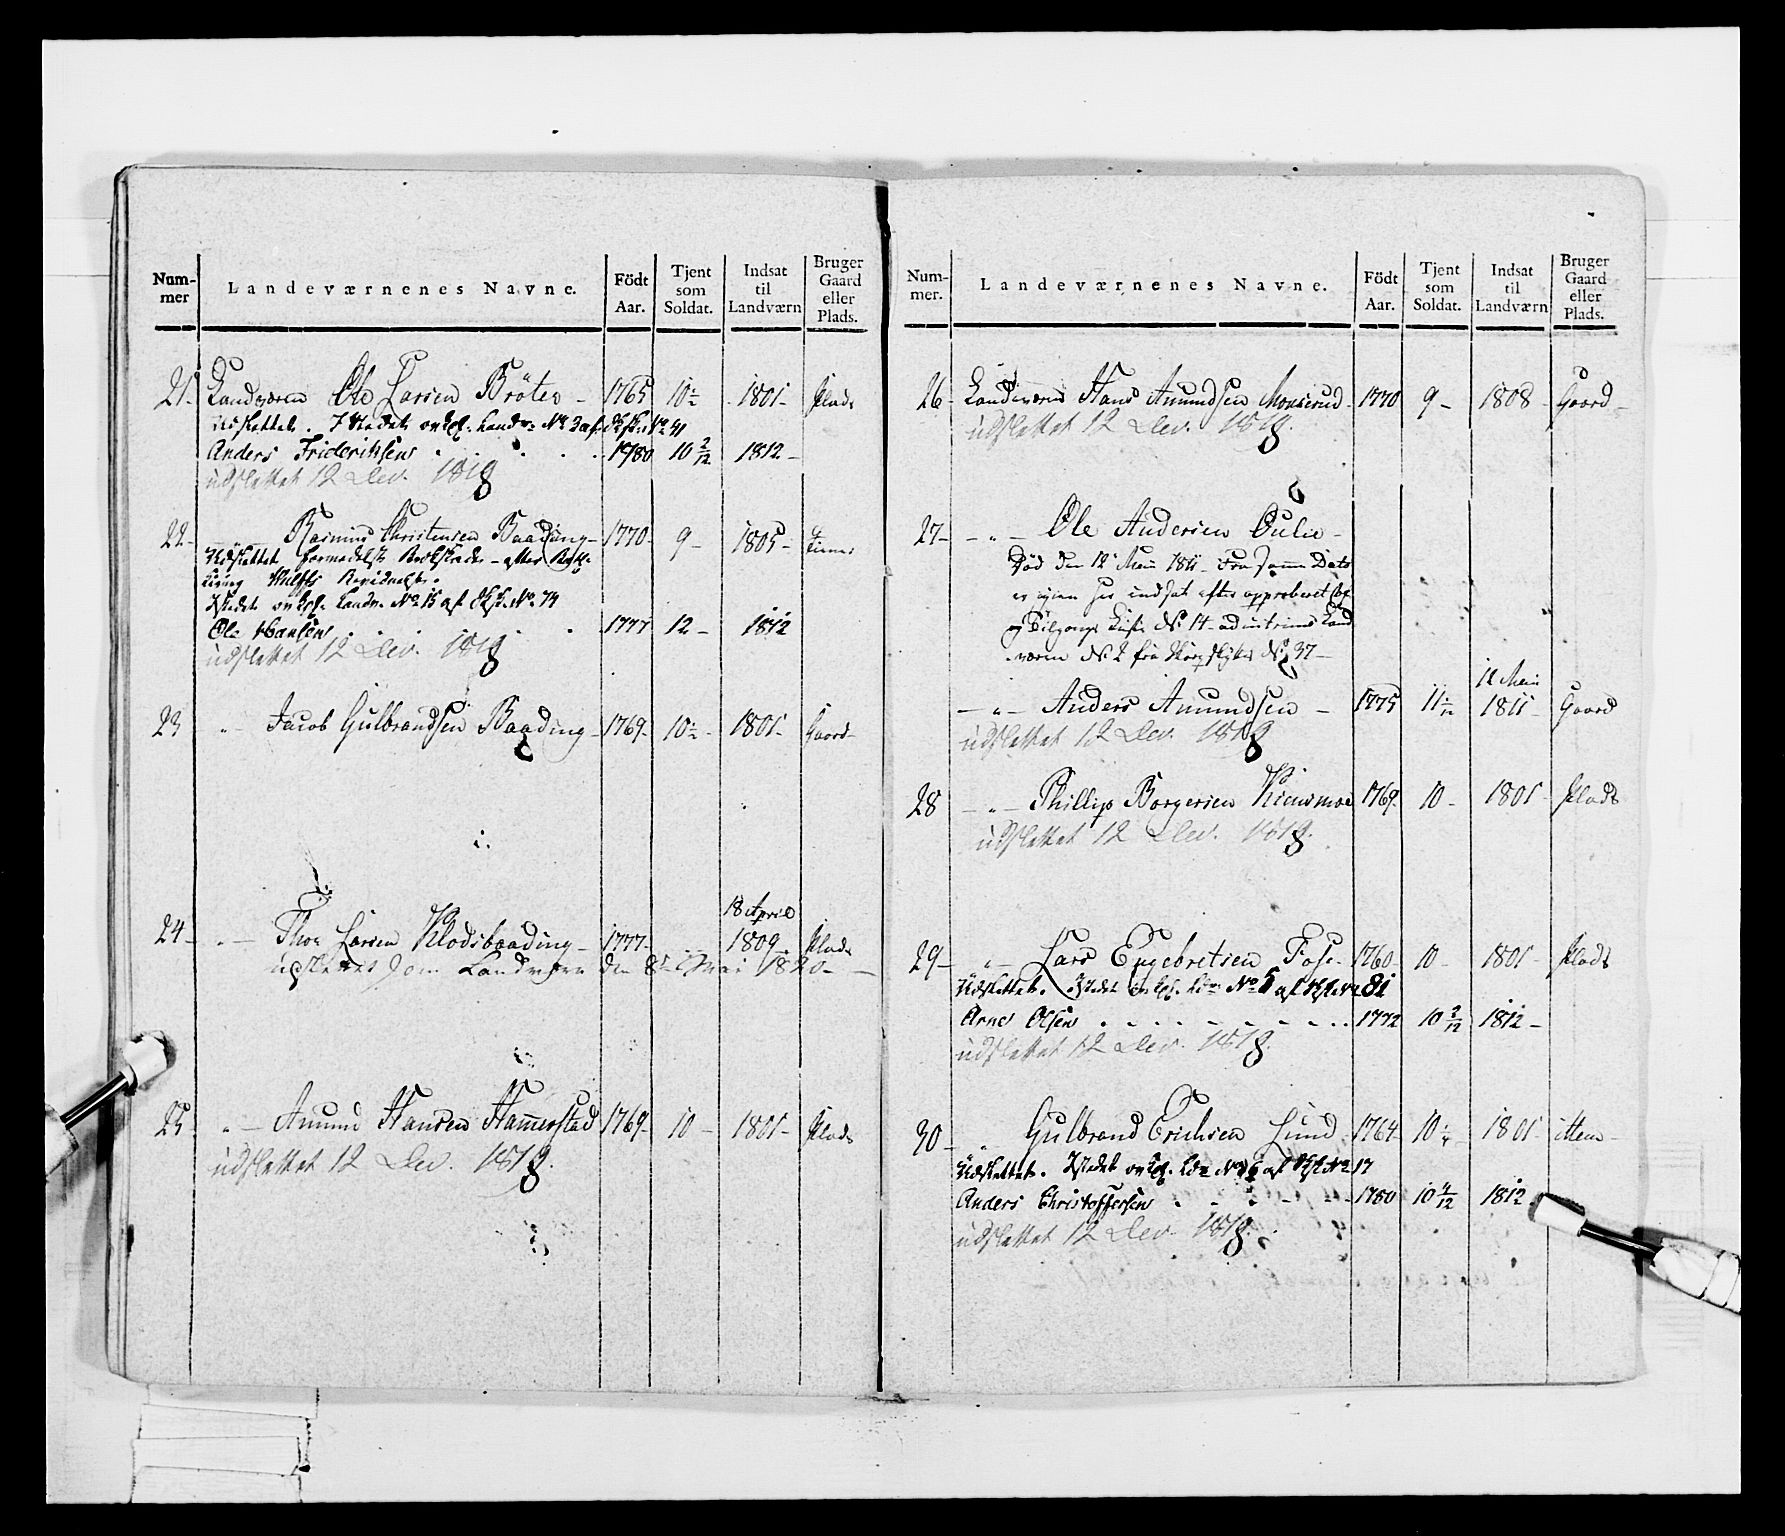 Num-
mer
Landeværnenes Navne.
Födt
Aar.
Tjent
som
Soldat.
Indsat
til
Landværn
Bruger
Gaard
eller
Plads.
21. Landværn Ole Larsen Bröten - 1765 10½ 1801- Plads
udslettet. I Stedet No 3
Anders Friderichsen 1780 10 2/12 1812-
udslettet 12 Dec. 1818
22- Rasmus Christensen Baading- 1770- 9- 1805-
Udslettet formedelst - efter
Istedet Landv. No 15 af No 74
Ole Hansen 1777 12- 1812
udslettet 12 Dec. 1818
23 " Jacob Gulbrandsen Baading- 1769- 10½- 1801- Gaard-
18 April
24- " Thor Larsen Klodsbaading- 1777- 1809- Plads
som Landværn den 8de Mai 1820-
25 " Amund Hansen Hammerstad 1769- 10- 1801- Plads
udslettet 12 Dec. 1818.
Num-
mer.
Landeværnenes Navne.
Födt
Aar.
Tjent
som
Soldat.
Indsat
til
Landværn
Bruger
Gaard
eller
Plads.
26- Landværn Hans Amundsen Monserud- 1770 9- 1808- Gaard-
udslettet 12 Dec. 1818.
27- " Ole Andersen Oulie-
Död den 12 Mai 1811- Fra samme Dato
er igien her indsat efter approberet
og Tilgangs Liste No 14-
værn No 2 fra No 37-
12 Mai
" Anders Amundsen - 1775 11 1811- Gaard
udslettet 12 Dec. 1818
28 " Phillip Borgersen Kiensmoe 1769- 10- 1801- Plads
udslettet 12 Dec. 1818.
29- " Lars Engebretsen Fose- 1760- 10- 1801- Plads
Udslettet. Istedet No 5 af 81
Arne Olsen 1772 10 2/12 1812-
udslettet 12 Dec. 1818.
30- " Gulbrand Erichsen Lund 1764- 10¼- 1801- item-
Udslettet. Istedet No 6 af No 17
Anders Christoffersen 1780 10 4/12 1812
udslettet 12 Dec. 1818.